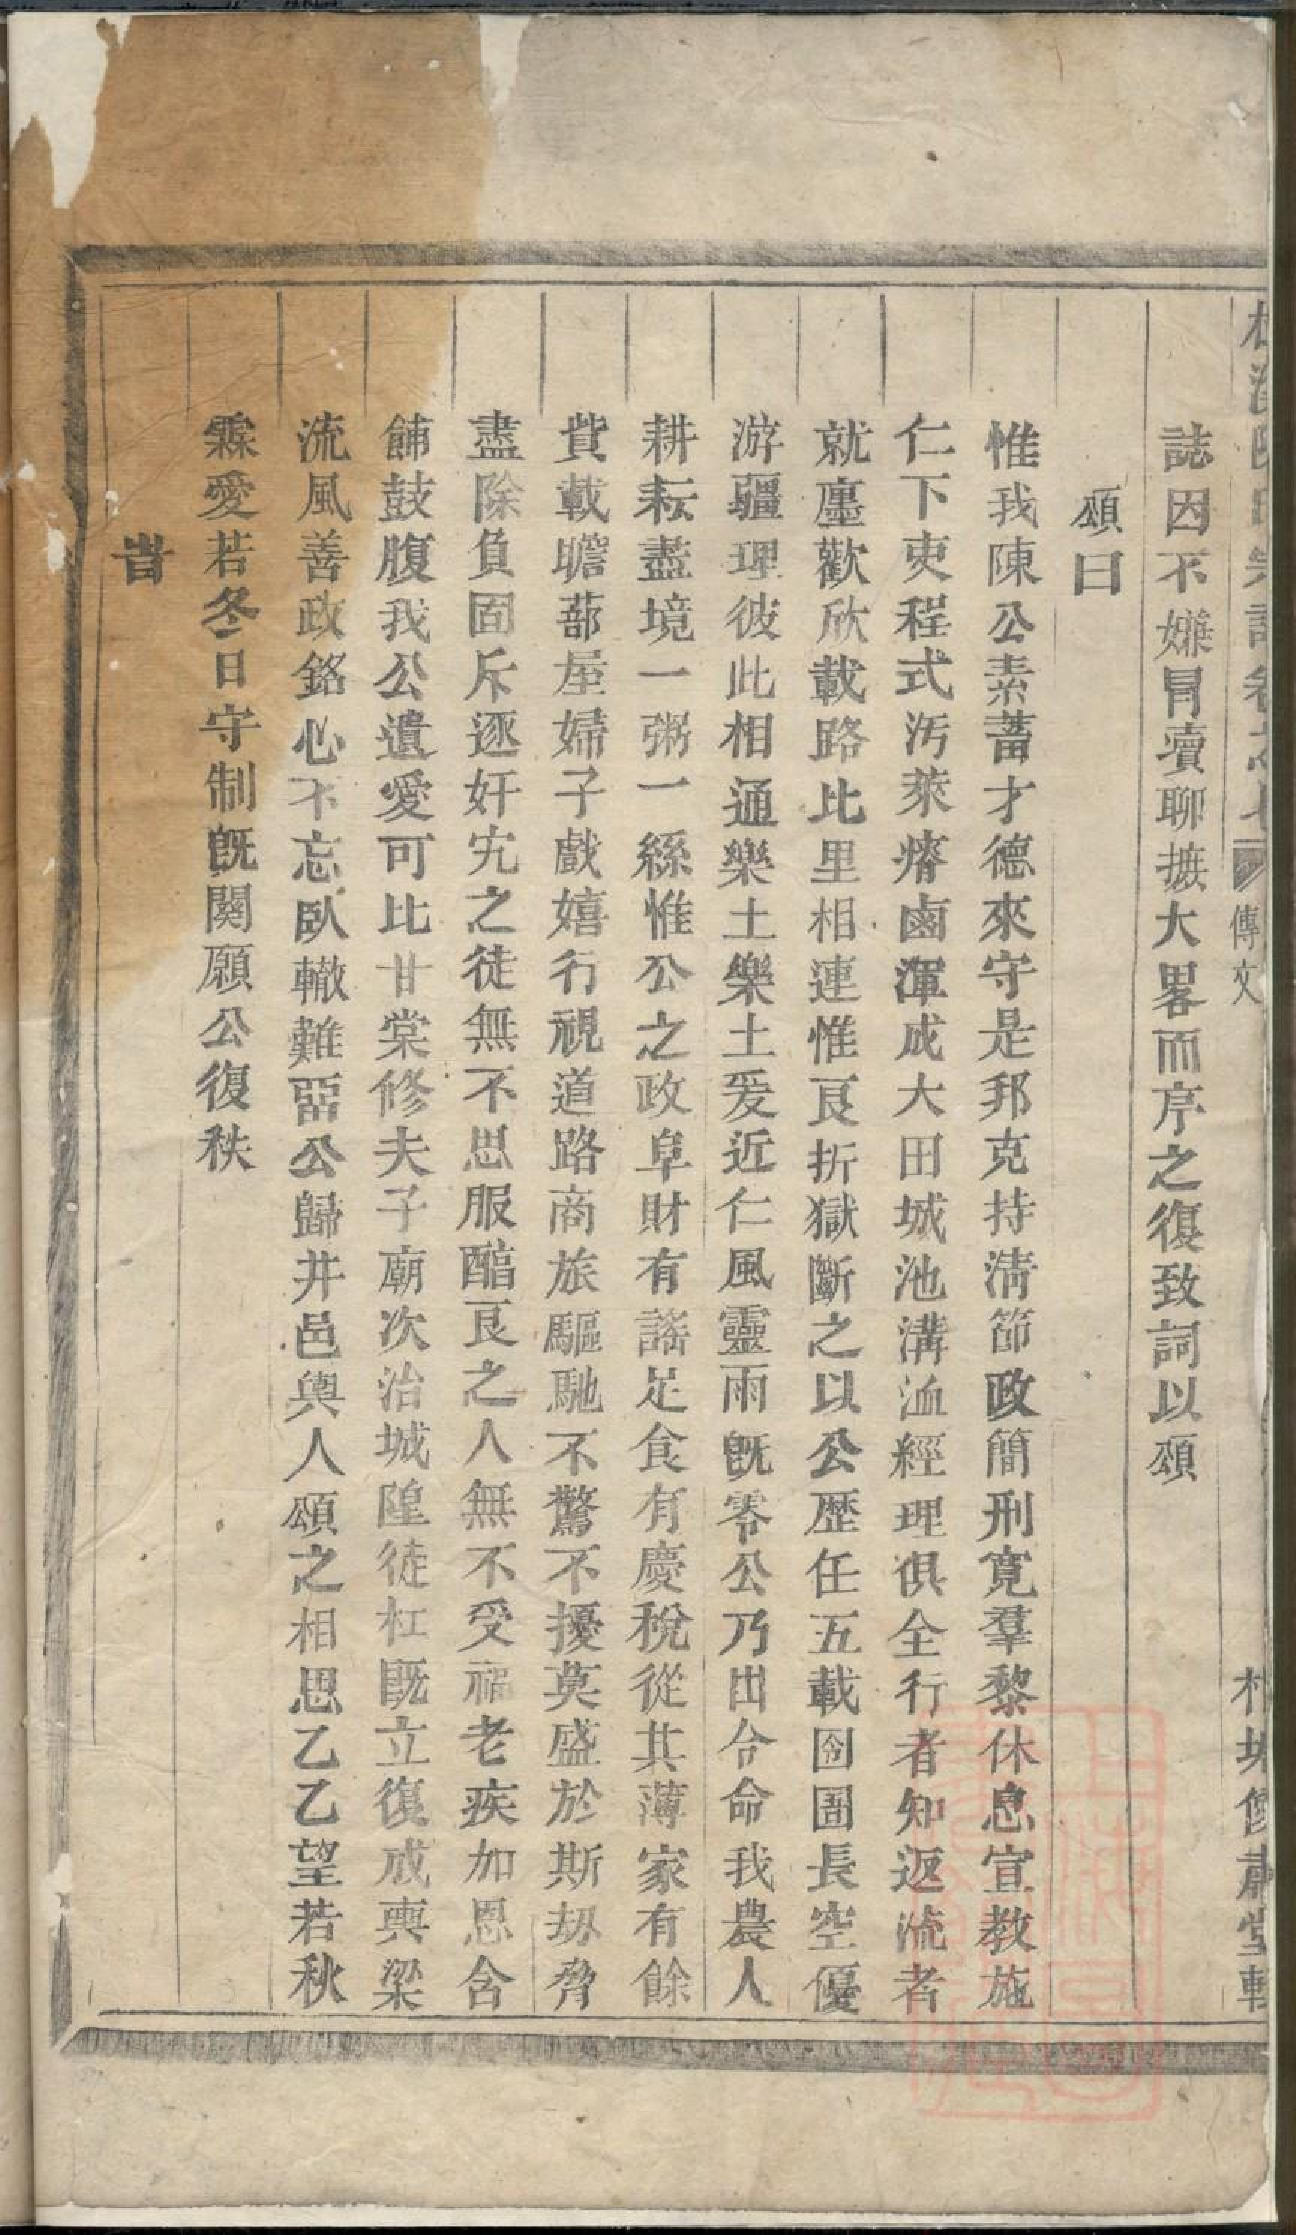 陳氏宗譜卷
傳文
堂
誌因不嫌冒瀆聊摭大畧而序之復致詞以頌
頌曰
惟我陳公素蓄才德來守是邦克持淸節政簡刑寬羣黎休息宣教施
仁下吏程式汚萊瘠鹵渾成大田城池溝洫經理俱全行者知返流者
就廛歡欣載路比里相連惟良折獄斷之以公歴任五載囹圄長空優
游疆理彼此相通樂土樂土爰近仁風靈雨旣零公乃出令命我農人
耕耘盡境一粥一絲惟公之政阜財有謠足食有慶稅從其薄家有餘
貲載瞻蔀屋婦子戲嬉行視道路商旅驅馳不驚不擾莫盛於斯刼脅
盡除負固斥逐奸宄之徒無不思服醕良之人無不受福老疾加恩含
餔鼓腹我公遺愛可比甘棠修夫子廟次治城隍徒杠旣立復戒輿梁
流風善政銘心不忘臥轍難畱公歸井邑輿人頌之相思乙乙望若秋
霖愛若冬日守制旣闋願公復秩
旹